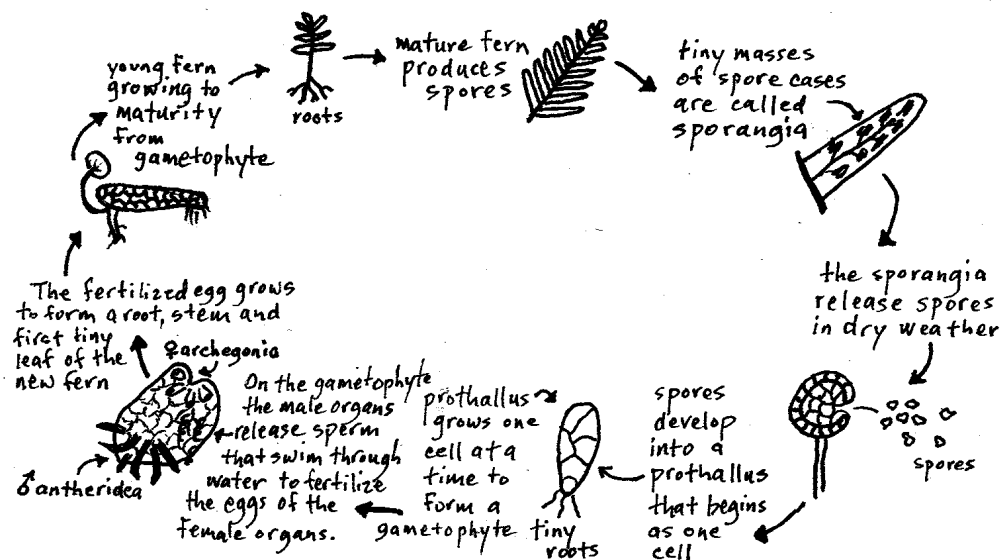 young fern
growing to
maturity
from
gametophyte
roots
mature fern
produces
spores
tiny masses
of spore cases
are called
sporangia
the sporangia
release spores
in dry weather
spores
spores
develop
into a
prothallus
that begins
as one
cell
prothallus
grows one
cell at a
time to
form a
gametophyte
tiny
roots
On the gametophyte
the male organs
release sperm
that swim through
water to fertilize
the eggs of the
female organs.
♀archegonia
♂antheridea
The fertilized egg grows
to form a root, stem and
first tiny
leaf of the
new fern